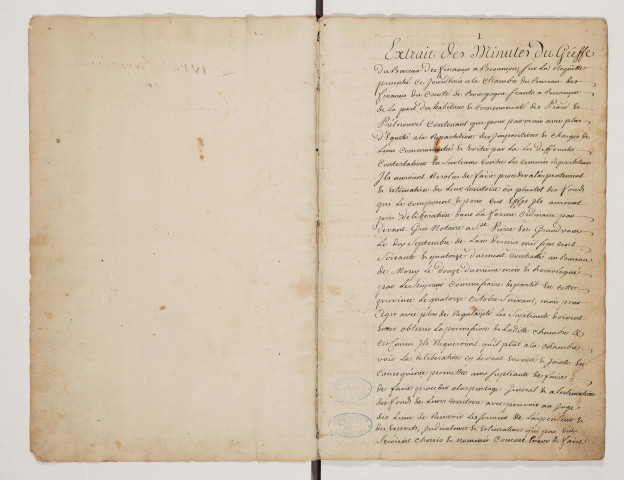 1
Extrait des Minutes Du Greffe
Du Bureau des finances a Besançon, sur La Requette
presentée ce Jourdhuis a la Chambre du Bureau des
finances du Comté de Bourgogne seante a Besançon
de La part des habitans & Communauté des Piards &
Prénovel Contenant que pour parvenir avec plus
d'Equité a la Repartition des Impositions & Charges de
Leurs Communautés & Eviter par La Les differentes
Contestations
Ils auroient Resolus de faire proceder a l'arpentement
& Estimation de Leur territoire ou plustot des fonds
que Le Composent, & pour Cest Effet Ils auroient
pris deliberation dans La forme ordinaire par
devant Notaire a St Pierre En Grandvaux
Le dix Septembre de L'an dernier mil sept cent
Soixante & quatorze duement Controllé au Bureau
de Morez Le Douze du même mois & homologué
par Le Seigneur Commissaire departit En cette
province Le quatorze octobre Suivant, mais pour
agir avec plus de Regularité Les Supliants doivent
Encor obtenir La permission de Laditte Chambre &
Ils Requeroient qu'il plût a la Chambre
voir La deliberation cy devant & Jointe En
Consequence permettre aux Supliants de faire
de faire proceder a l'arpentage general & a l'estimation
des fonds de Leurs territoire avec pouvoir au Juge
des Lieux de Recevoir Les serments de L'arpenteur &
des Experts, Indicateurs & Estimateurs qui pour Ce
Seroient choisis & nommés